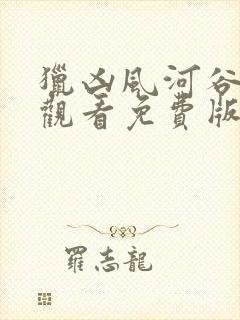 獵凶風河谷
觀看免費版
羅志龍